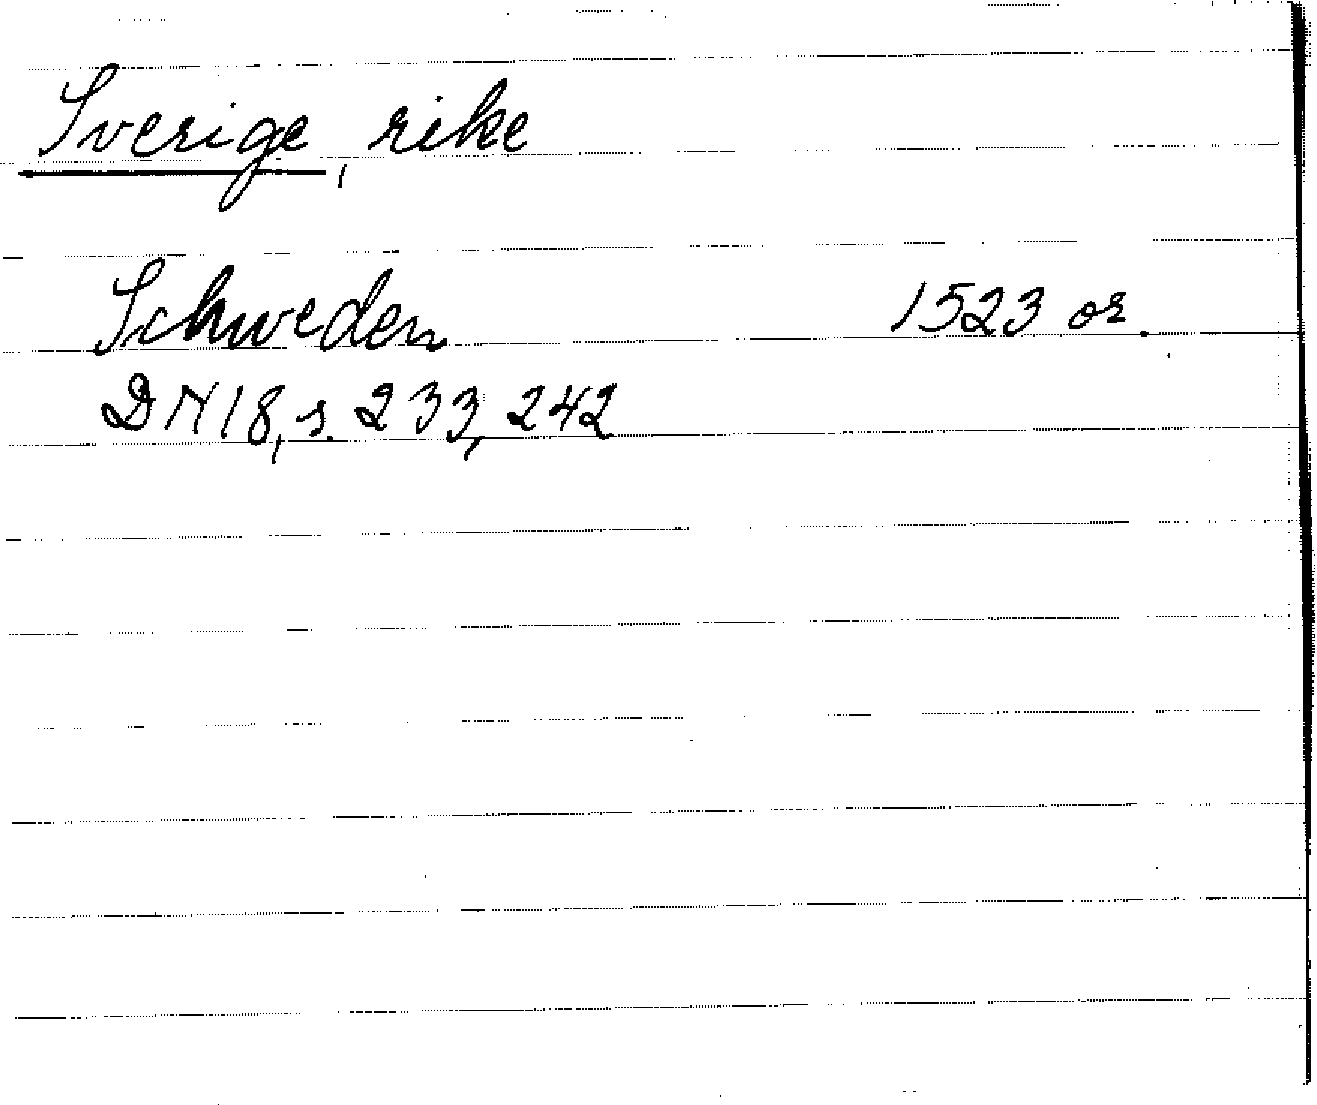 Sverige, rike
Schweden 1523 or.
DN 18, s. 233, 242